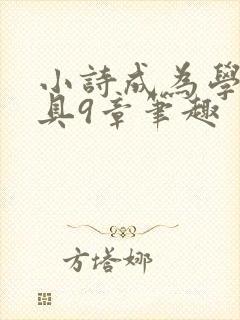 小詩成為學
具9章筆趣
方塔娜